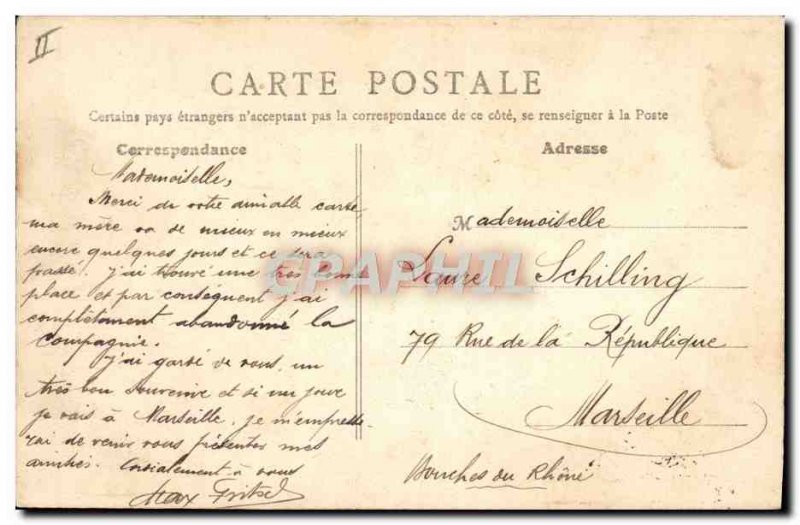 II
CARTE POSTALE
Certains pays étrangers n'acceptant pas la correspondance de ce côté, se renseigner à la Poste
Correspondance
Adresse
Mademoiselle,
Merci de votre aimable carte,
ma mère va de mieux en mieux
encore quelques jours et ce sera
passé. J'ai trouvé une très bonne
place et par conséquent j'ai
complètement abandonné la
compagnie.
J'ai gardé de vous, un
très bon souvenir et si un jour
je vais à Marseille, je m'empresse-
rai de venir vous présenter mes
amitiés. Cordialement à vous
Max
Mademoiselle
Laure Schilling
79 Rue de la République
Marseille
Bouches du Rhône
CPAPHIL